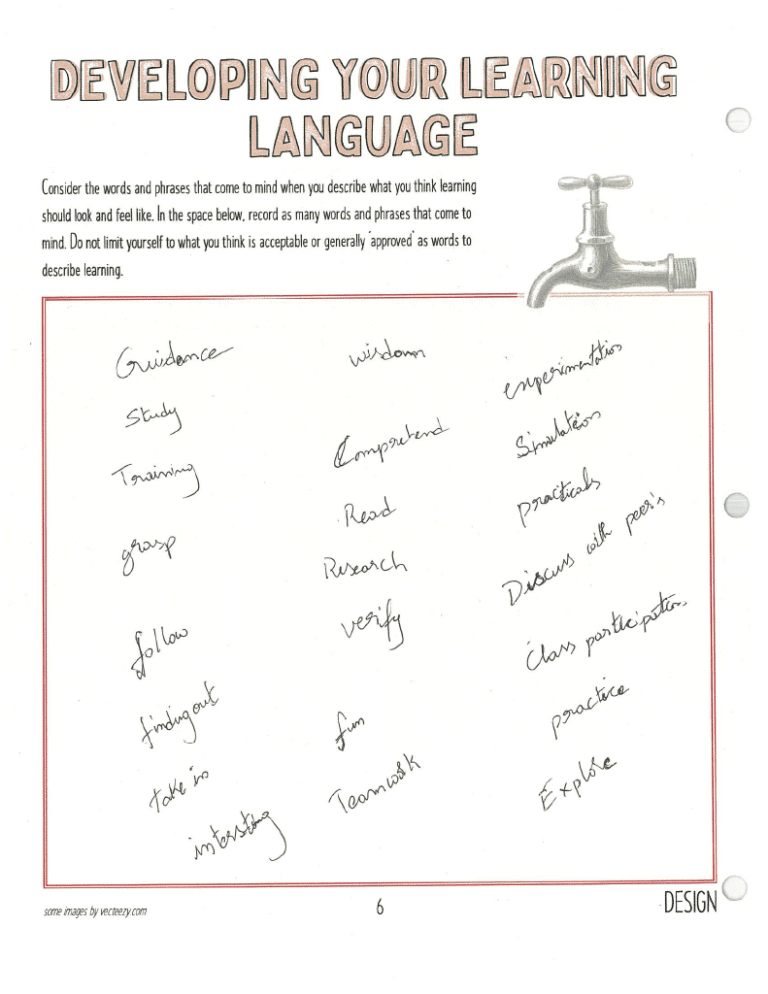 DEVELOPING YOUR LEARNING
LANGUAGE
Consider the words and phrases that come to mind when you describe what you think learning
should look and feel like. In the space below, record as many words and phrases that come to
mind. Do not limit yourself to what you think is acceptable or generally "approved" as words to
describe learning.
Guidance
Study
Training
grasp
follow
finding out
take in
intersting
wisdom
Comprehend
Read
Research
verify
fun
Teamwork
experimentation
Simulation
practicals
Discuss with peer's
Class participation.
practice
Explore
some images by vecteezy.com
6
DESIGN